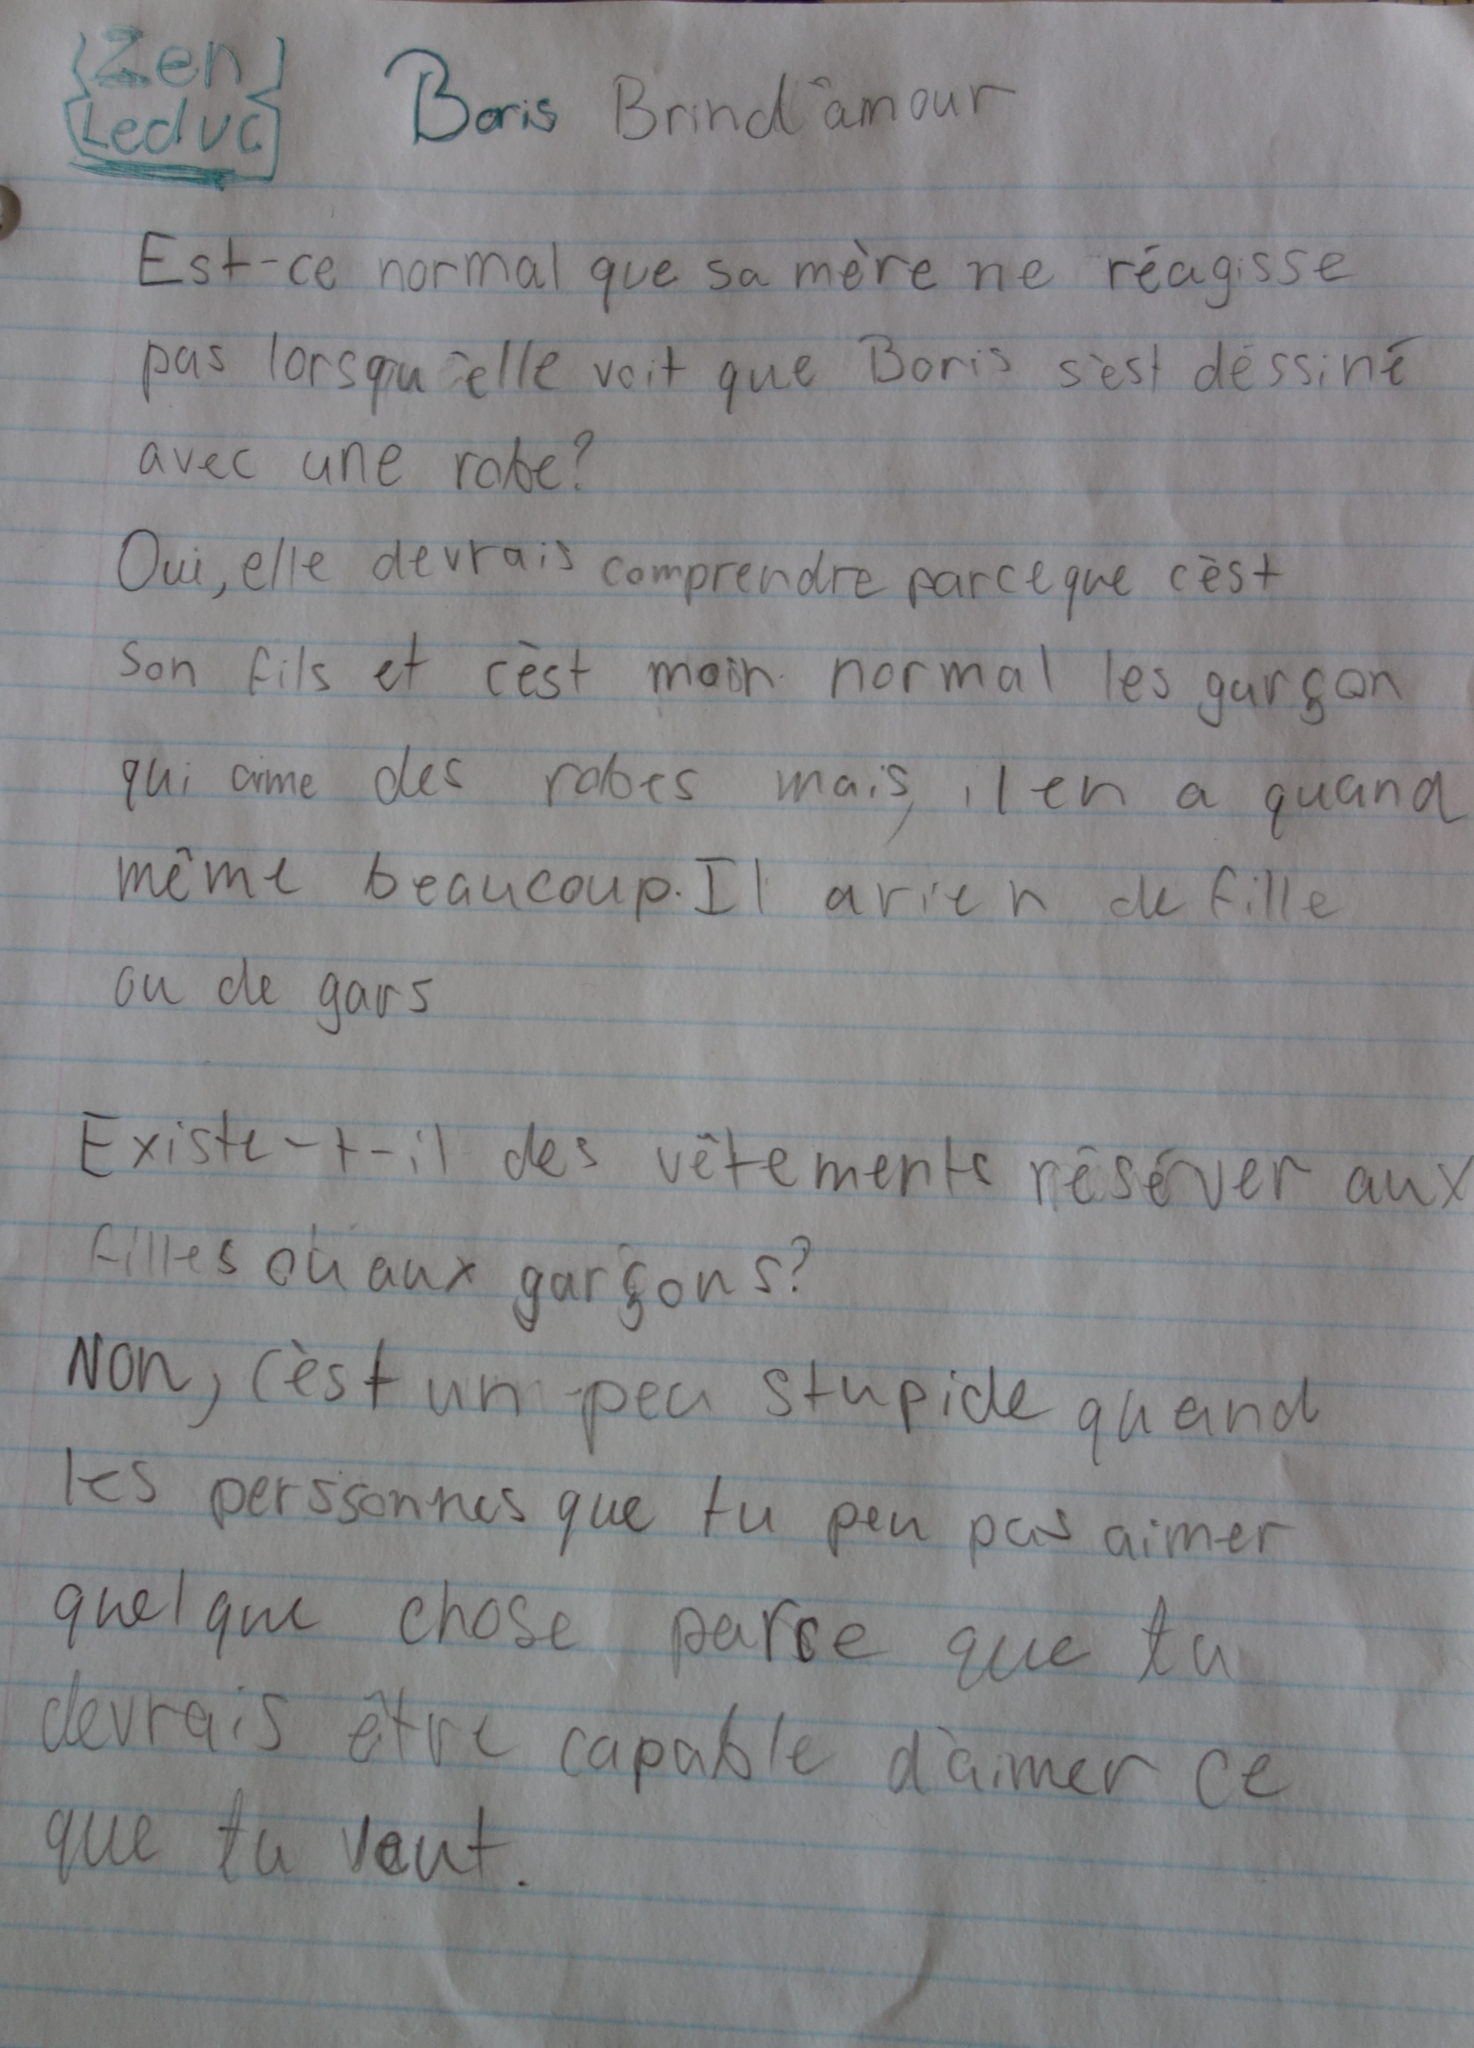 Zen
Leduc
Boris Brind'amour
Est-ce normal que sa mère ne réagisse
pas lorsqu'elle voit que Boris s'est déssiné
avec une robe?
Oui, elle devrais comprendre parceque c'est
son fils et c'est moin normal les garçon
qui aime des robes mais, il en a quand
même beaucoup. Il a rien de fille
ou de gars
Existe-t-il des vêtements résérver aux
filles ou aux garçons?
Non, c'est un peu stupide quand
les perssonnes que tu peu pas aimer
quelque chose parce que tu
devrais être capable d'aimer ce
que tu veut.